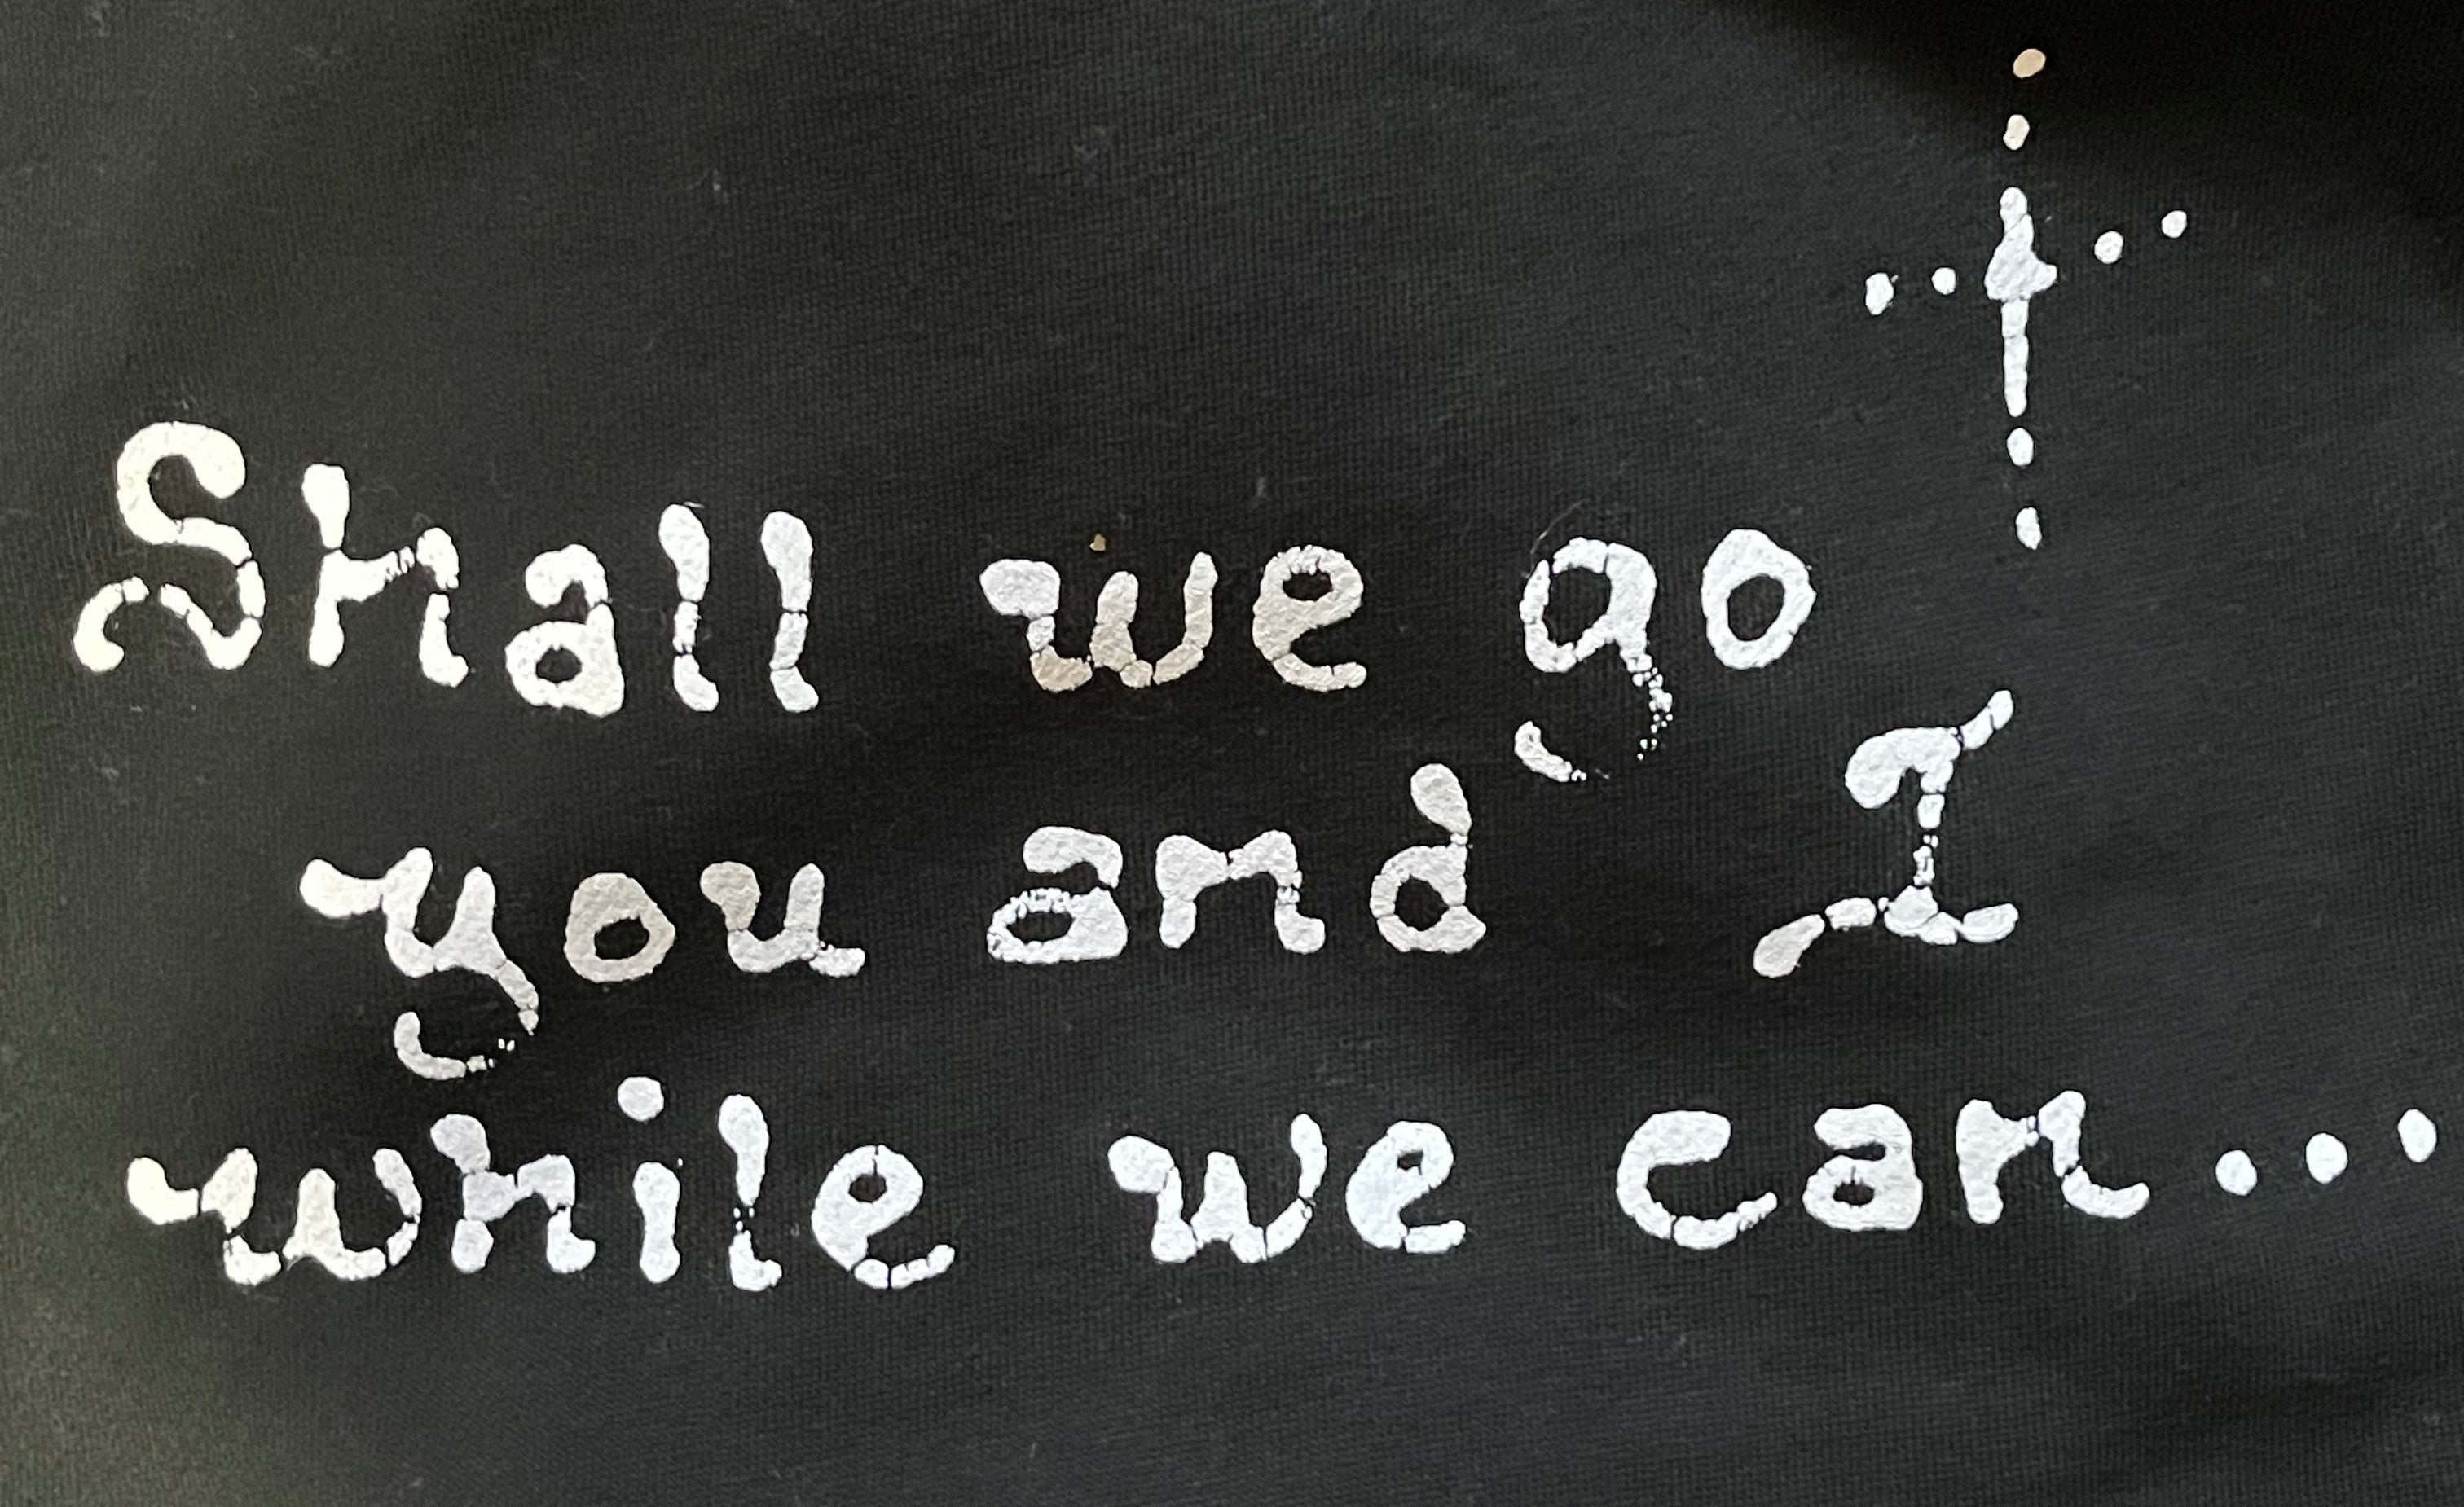 Shall we go
you and I
while we can...